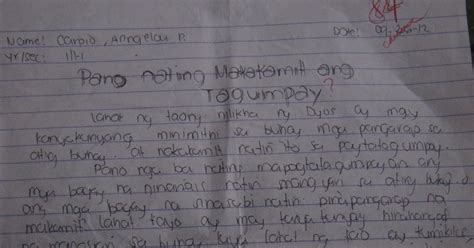 Name: Carpio, Anngelou P. Date: 84
Yr/Sec: III-1
Pano nating Makatamit ang
Tagumpay?
lahat ng taong nilikha ng Diyos ay may
kanyakanyang minimithi sa buhay mga pangarap sa
ating buhay. at nakakamit natin ito sa pagtatagumpay.
Pano nga ba nating mapagtatagumpayan ang
mga bagay na ninanais natin mangyari sa ating buhay
ang mga bagay na sinasabi natin pinapangarap ng
makamit lahat tayo ay may hinaharap
na sa buhay kaya lahat ng tao ay